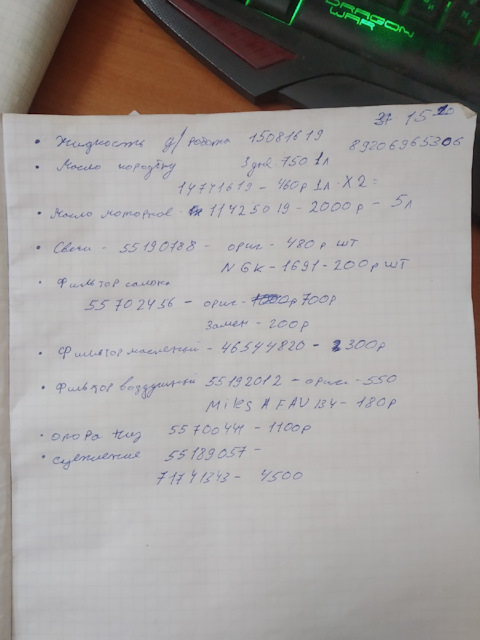 DRAGON
WAR
37 15 20
• Жидкость д/робота 15081619
89206965306
• Масло коробку 3 дня 750 1л
14741619 - 460р 1л. X2 =
• Масло моторное 11425019 - 2000р - 5л
• Свечи - 55190188 - ориг - 480р шт
NGK - 1691 - 200р шт
• Фильтр салона
55702456 - ориг - 700р
Замен - 200р
• Фильтр масленый - 46544820 - 300р
• Фильтр воздушный 55192012 - ориг - 550
Miles AFAV134 - 180р
• опора низ 55700441 - 1100р
• сцепление 55189057 -
71741343 - 4500